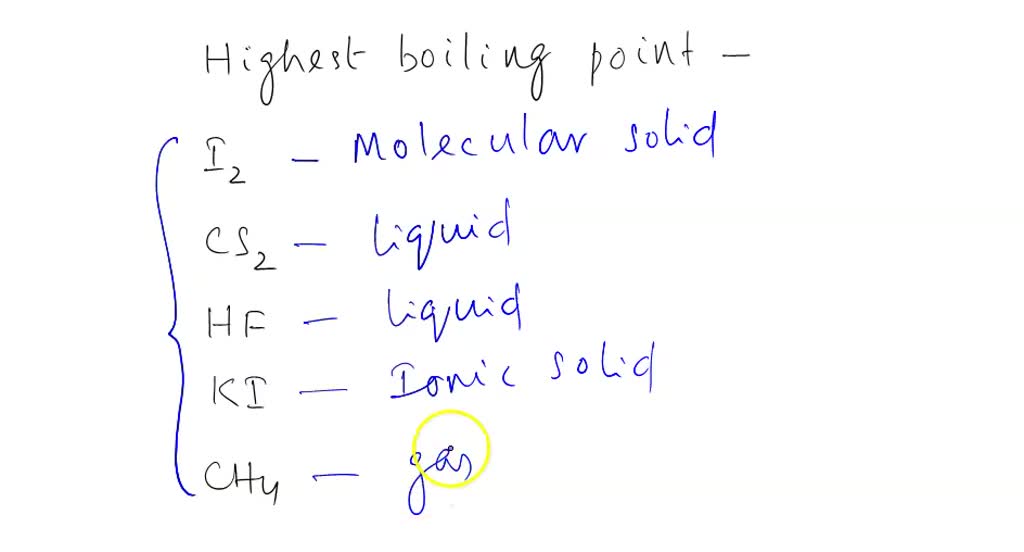 Highest boiling point –
I₂ – Molecular solid
CS₂ – liquid
HF – liquid
KI – Ionic solid
CH₄ – gas